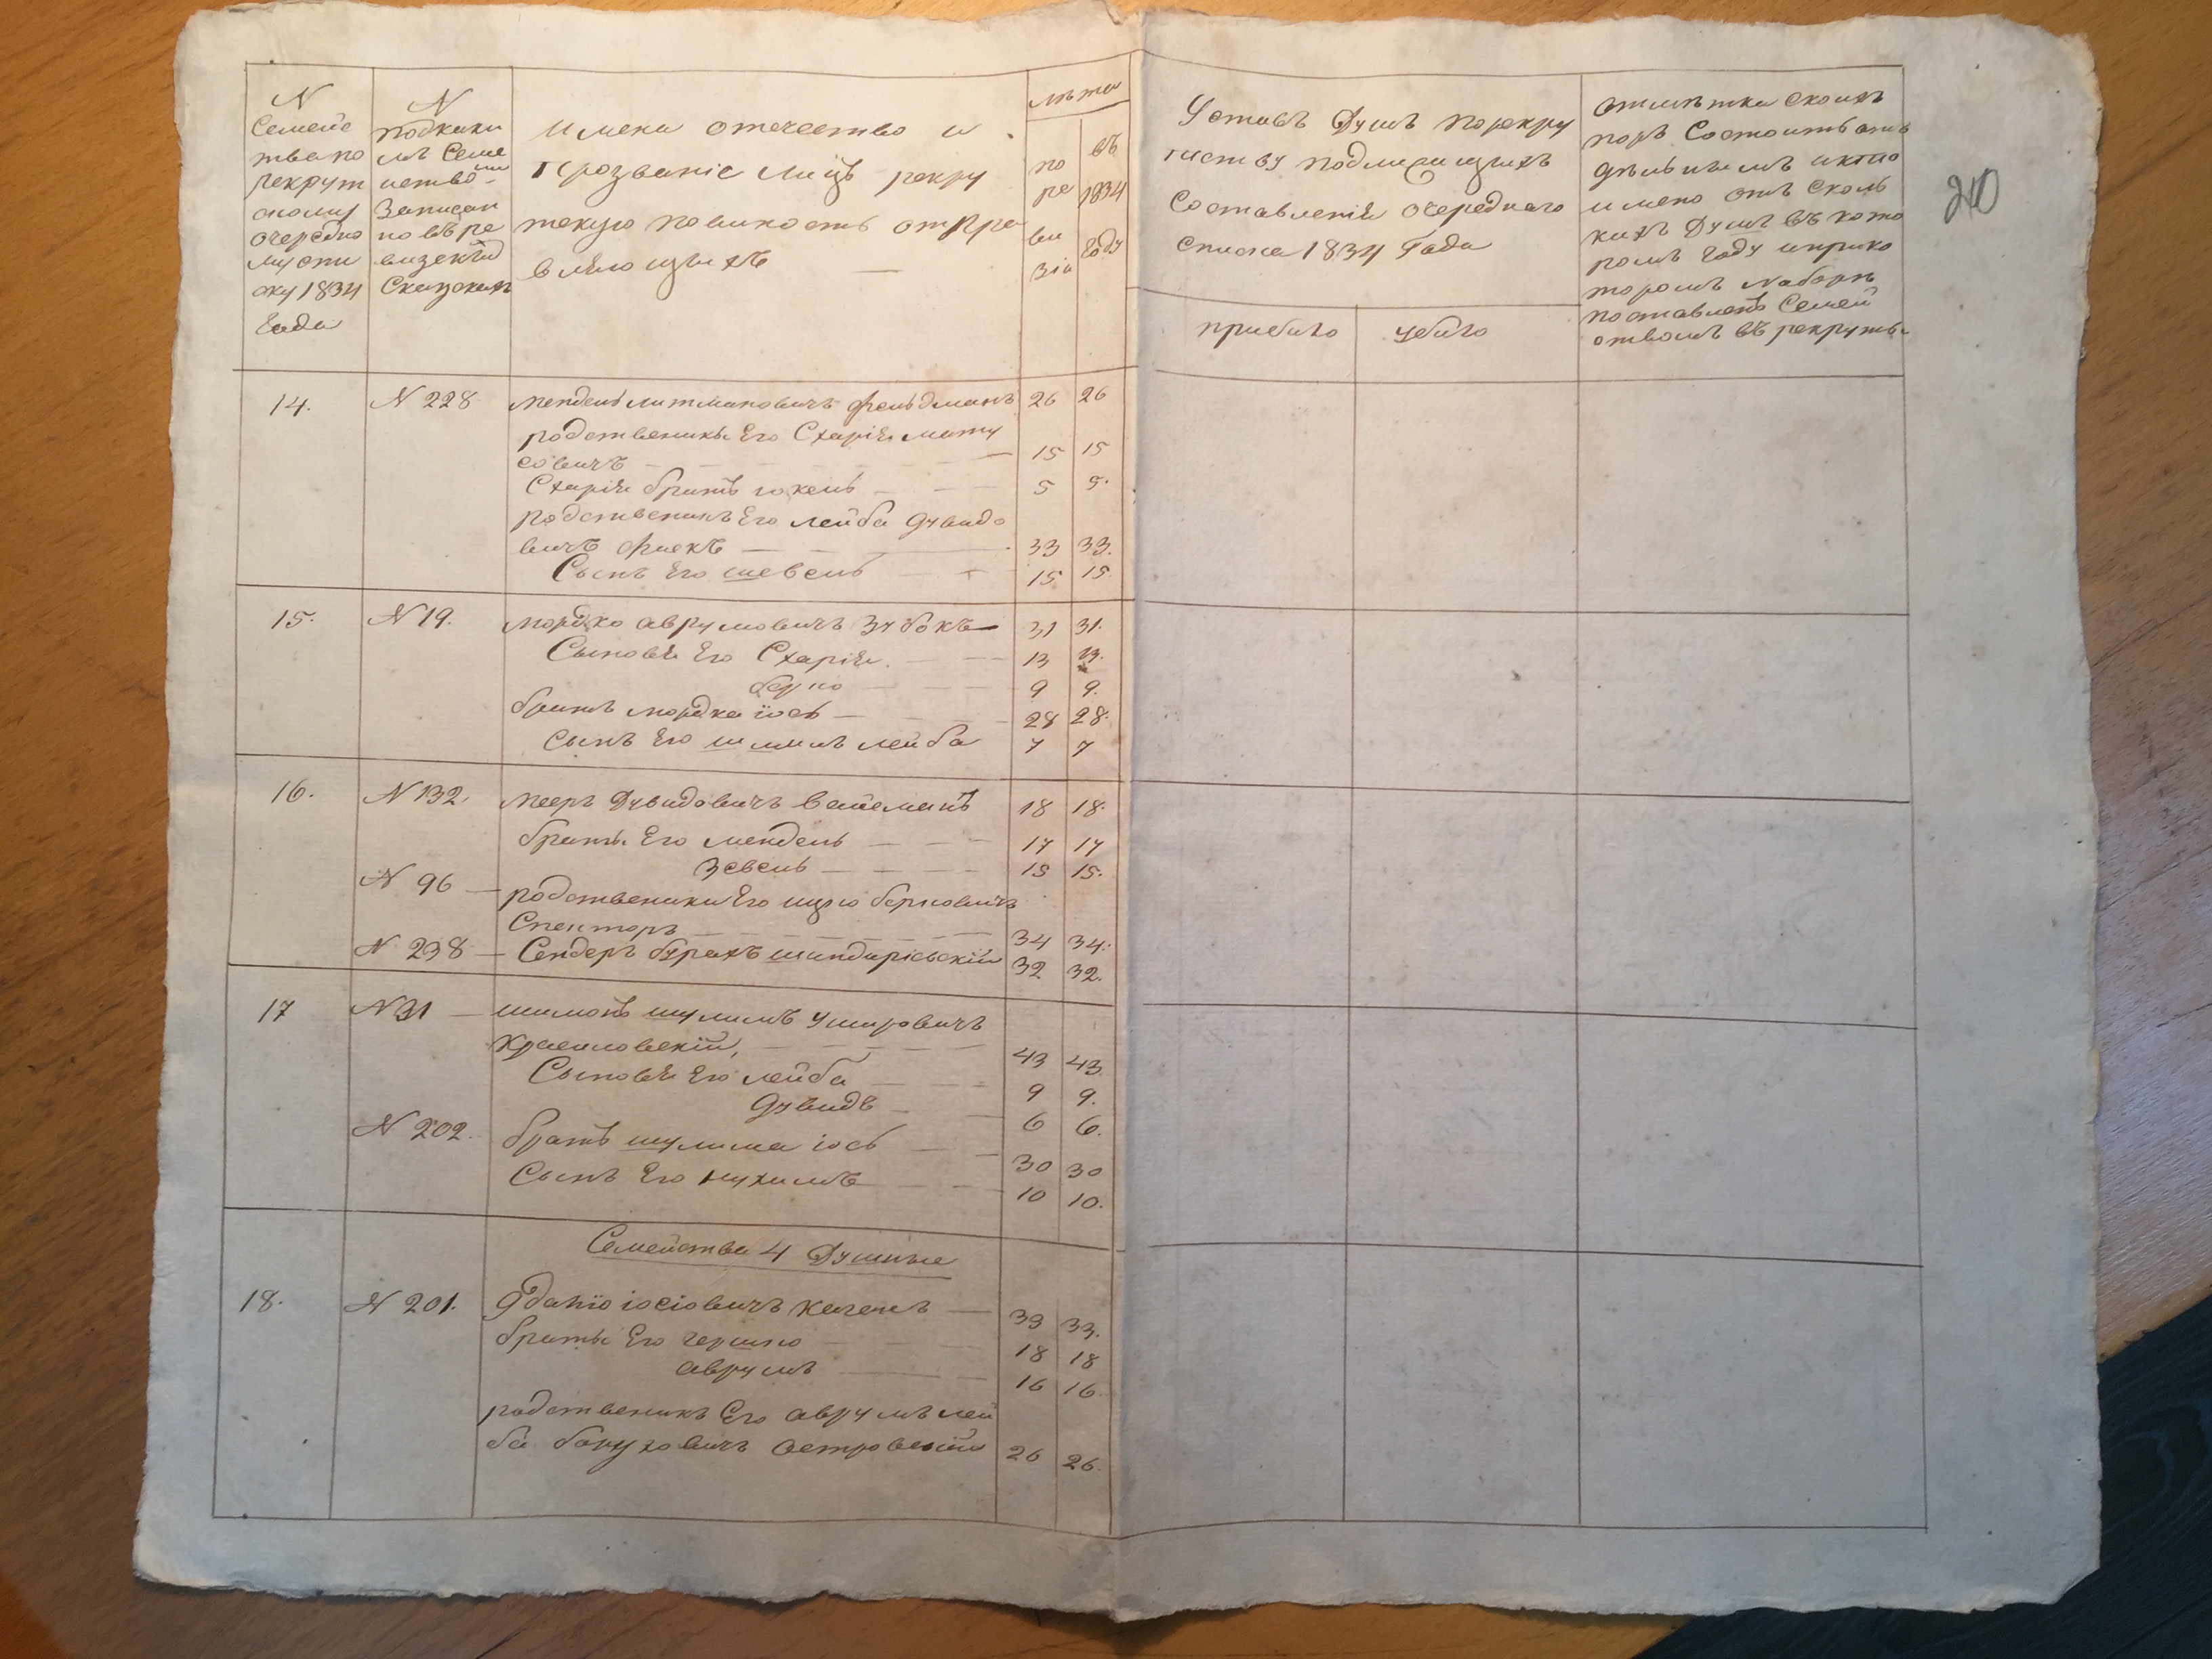 N
Семейс
тва по
рекрут
скому
очередно
му спи
ску 1834
Года
N
подкаки
мъ Семе
йство
Записан
но въ ре
визскій
Сказкахъ
Имена отечество и
Прозваніе лицъ рекру
тскую повинность отпра
вляющихъ —
лѣта
по
ре
ви
зіи
въ
1834
Году
Уставъ Душъ по рекру
тству подлежащихъ
Составленія очереднаго
списка 1834 Года
прибыло
убыло
отмѣтка скоихъ
поръ Состоитъ отъ
дѣльнымъ икто
имено отъ Сколь
кихъ Душъ въ кото
ромъ Году ипри ко
торомъ Наборѣ
поставленъ Семей
ствомъ въ рекруты
210
14. N 228 мендель литмановичъ фельдманъ 26 26
родственикы Его Схарія мату
совичъ — 15 15
Схаріи братъ іокель — 5 5.
родственикъ Его лейба дувидо
вичъ фиекъ — 33 33.
Сынъ Его шевель — 15 15.
15. N 19. мордко аврумовичъ зубокъ 31 31.
Сыновья Его Схарія. — 13 13.
берко — 9 9.
братъ мордка іось — 28 28.
сынъ Его шлима лейба 7 7
16. N 132. мееръ Дувидовичъ вайсманъ 18 18.
братья Его мендель — 17 17
зевель — 15 15.
N 96 — родственики Его ицко берковичъ
Спекторъ — 34 34.
N 238 — Сендеръ бурахъ шандаріевскій 32 32.
17 N 31 — шимонъ шулимъ ушировичъ
Красиловскій, — 43 43.
Сыновья Его лейба — 9 9.
дувидъ — 6 6.
N 202. братъ шулима іось — 30 30
Сынъ Его нухимъ — 10 10.
Семейства 4 Душные
18. N 201. Юданіо іосіовичъ каганъ — 33 33.
братья Его гершко — 18 18
аврумъ — 16 16.
родственикъ Его аврумъ лей
ба боруховичъ островскій 26 26.